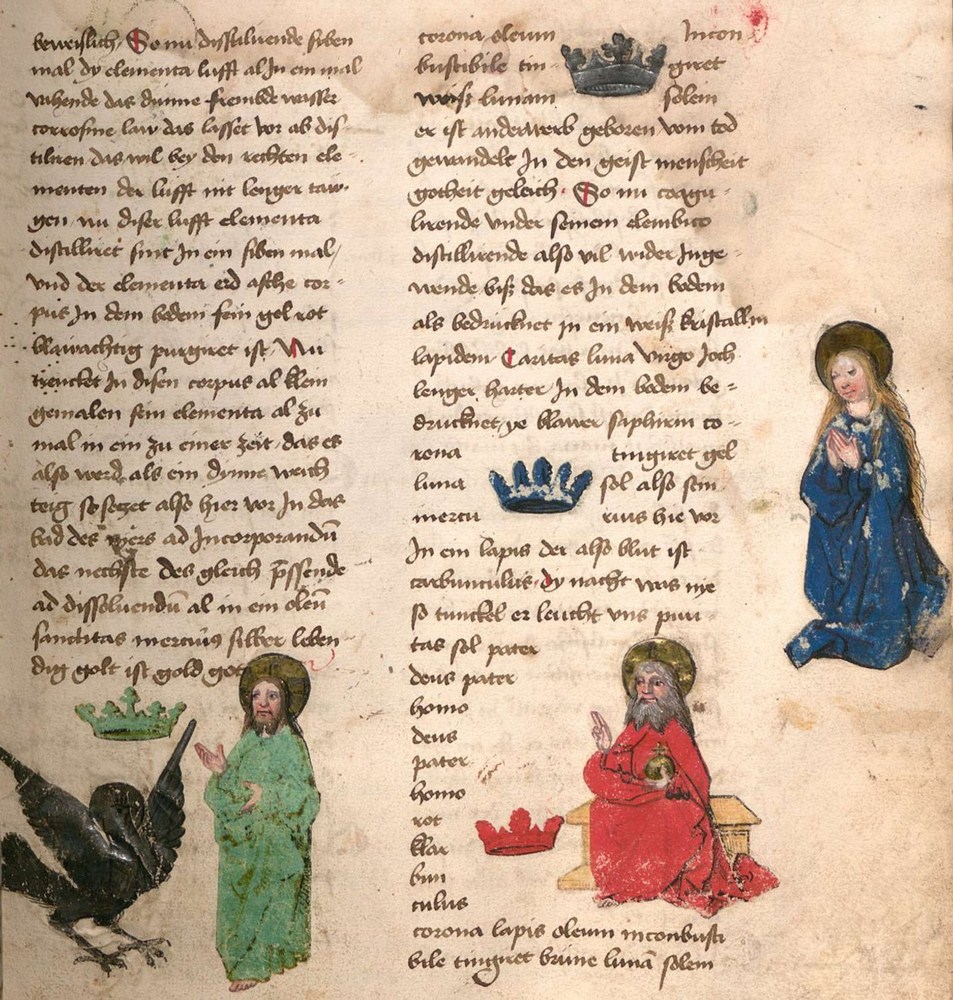 beweislich. So nu dissiluiende siben
mal dy elementa lufft al In ein mal
zihende das dunne frembde wasser
corrosiue law das lasset vor ab dis
tiliren das wil bey den rechten ele-
menten der lufft nit lenger taw-
gen. nu diser lufft elementa
distilliret sint In ein siben mal/
vnd der elementa erd asche cor-
pus In dem bodem sein gel rot
blawachtig purgiret ist. Nu
trencket In disen corpus al klein
gemalen sein elementa al zu
mal in ein zu einer zeit. das es
also werd als ein dynne weich
teig so seczet also hier vor In das
bad des ad Incorporandū
das nechste des gleich
ad dissoluendū al in ein oleū
sanctitas mercuius silber leben
dig golt ist gold got
corona oleum Incon
bustibile tin- giret
weiss lunam solem
er ist anderwerb geboren vom tod
gewandelt In den geist menscheit
gotheit geleich. So nu coagu-
lirende vnder seinem elembico
distillirende also vil wider Inge-
wende biss das es In dem bodem
als bedrucknet in ein weiss kristallin
lapidem. Caritas luna virgo Ioch
lenger harter In dem bodem be-
drucknet ye blawer saphirin co-
rona tingiret gel
luna sol also sein
mercu rius hie vor
In ein lapis der also blut ist
carbunculus dy nacht was nie
so tunckel er leucht vns puri-
tas sol pater
deus pater
homo
deus
pater
homo
rot
klar
bun
culus
corona lapis oleum inconbusti
bile tingiret brune lunā solem